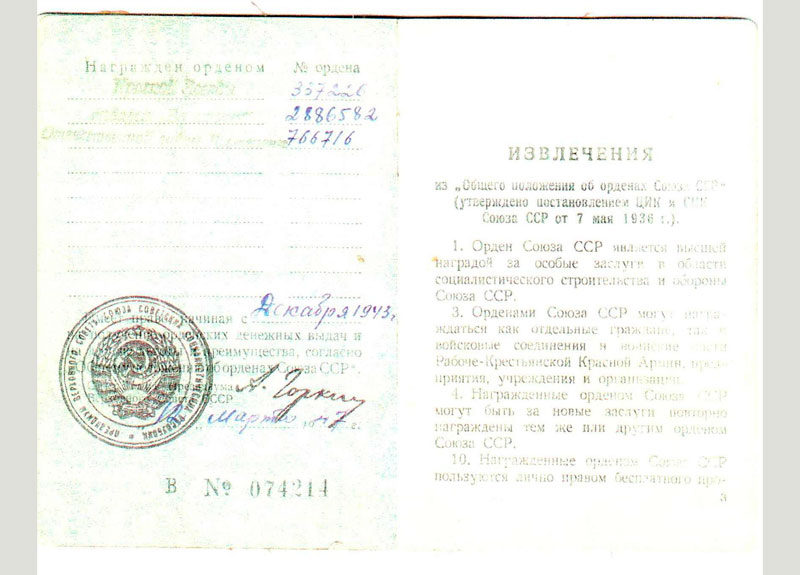 Награжден орденом № ордена
Красной Звезды 337220
2886582
Отечественной войны 766716
право начиная с Декабря 1943 г.
денежных выдач и
преимущества, согласно
об орденах Союза ССР".
А. Горкин
Марта 1947 г.
В № 074214
ИЗВЛЕЧЕНИЯ
из „Общего положения об орденах Союза ССР"
(утверждено постановлением ЦИК и СНК
Союза ССР от 7 мая 1936 г.).
1. Орден Союза ССР является высшей
наградой за особые заслуги в области
социалистического строительства и обороны
Союза ССР.
3. Орденами Союза ССР могут награ-
ждаться как отдельные граждане, так и
войсковые соединения и воинские части
Рабоче-Крестьянской Красной Армии, пред-
приятия, учреждения и организации.
4. Награжденные орденом Союза ССР
могут быть за новые заслуги повторно
награждены тем же или другим орденом
Союза ССР.
10. Награжденные орденом Союза ССР
пользуются лично правом бесплатного про-
а